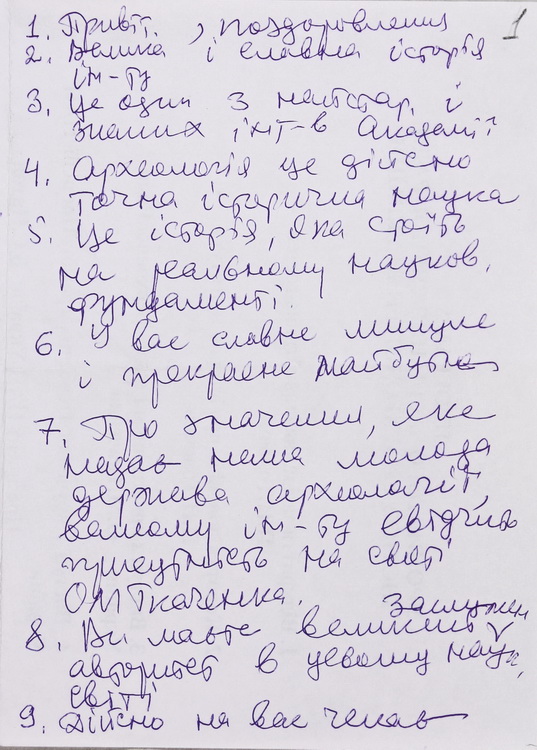 1
1. Привіт. , поздоровлення
2. Велика і славна історія
ін-ту
3. Це один з найстар. і
знаних інт-в Академії
4. Археологія це дійсно
точна історична наука
5. Це історія, яка стоїть
на реальному науков.
фундаменті.
6. У вас славне минуле
і прекрасне майбутнє
7. Про значення, яке
надає наша молода
держава археології,
вашому ін-ту свідчить
присутність на святі
ОМТкаченка.
заслужен
8. Ви маєте великий
авторитет в цевому наук,
світі
9. Дійсно на вас чекає